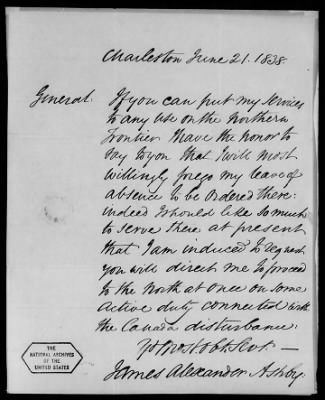 Charleston June 21. 1838.
General. If you can put my services
to any use on the Northern
Frontier I have the honor to
say to you that I will most
willingly forego my leave of
absence to be Ordered there:
indeed I should like so much
to serve there at present
that I am induced to request
you will direct me to proceed
to the North at once on some
Active duty connected with
the Canada disturbance.
Yr Most Obt Sevt. —
James Alexander Ashby.
THE
NATIONAL ARCHIVES
OF THE
UNITED STATES